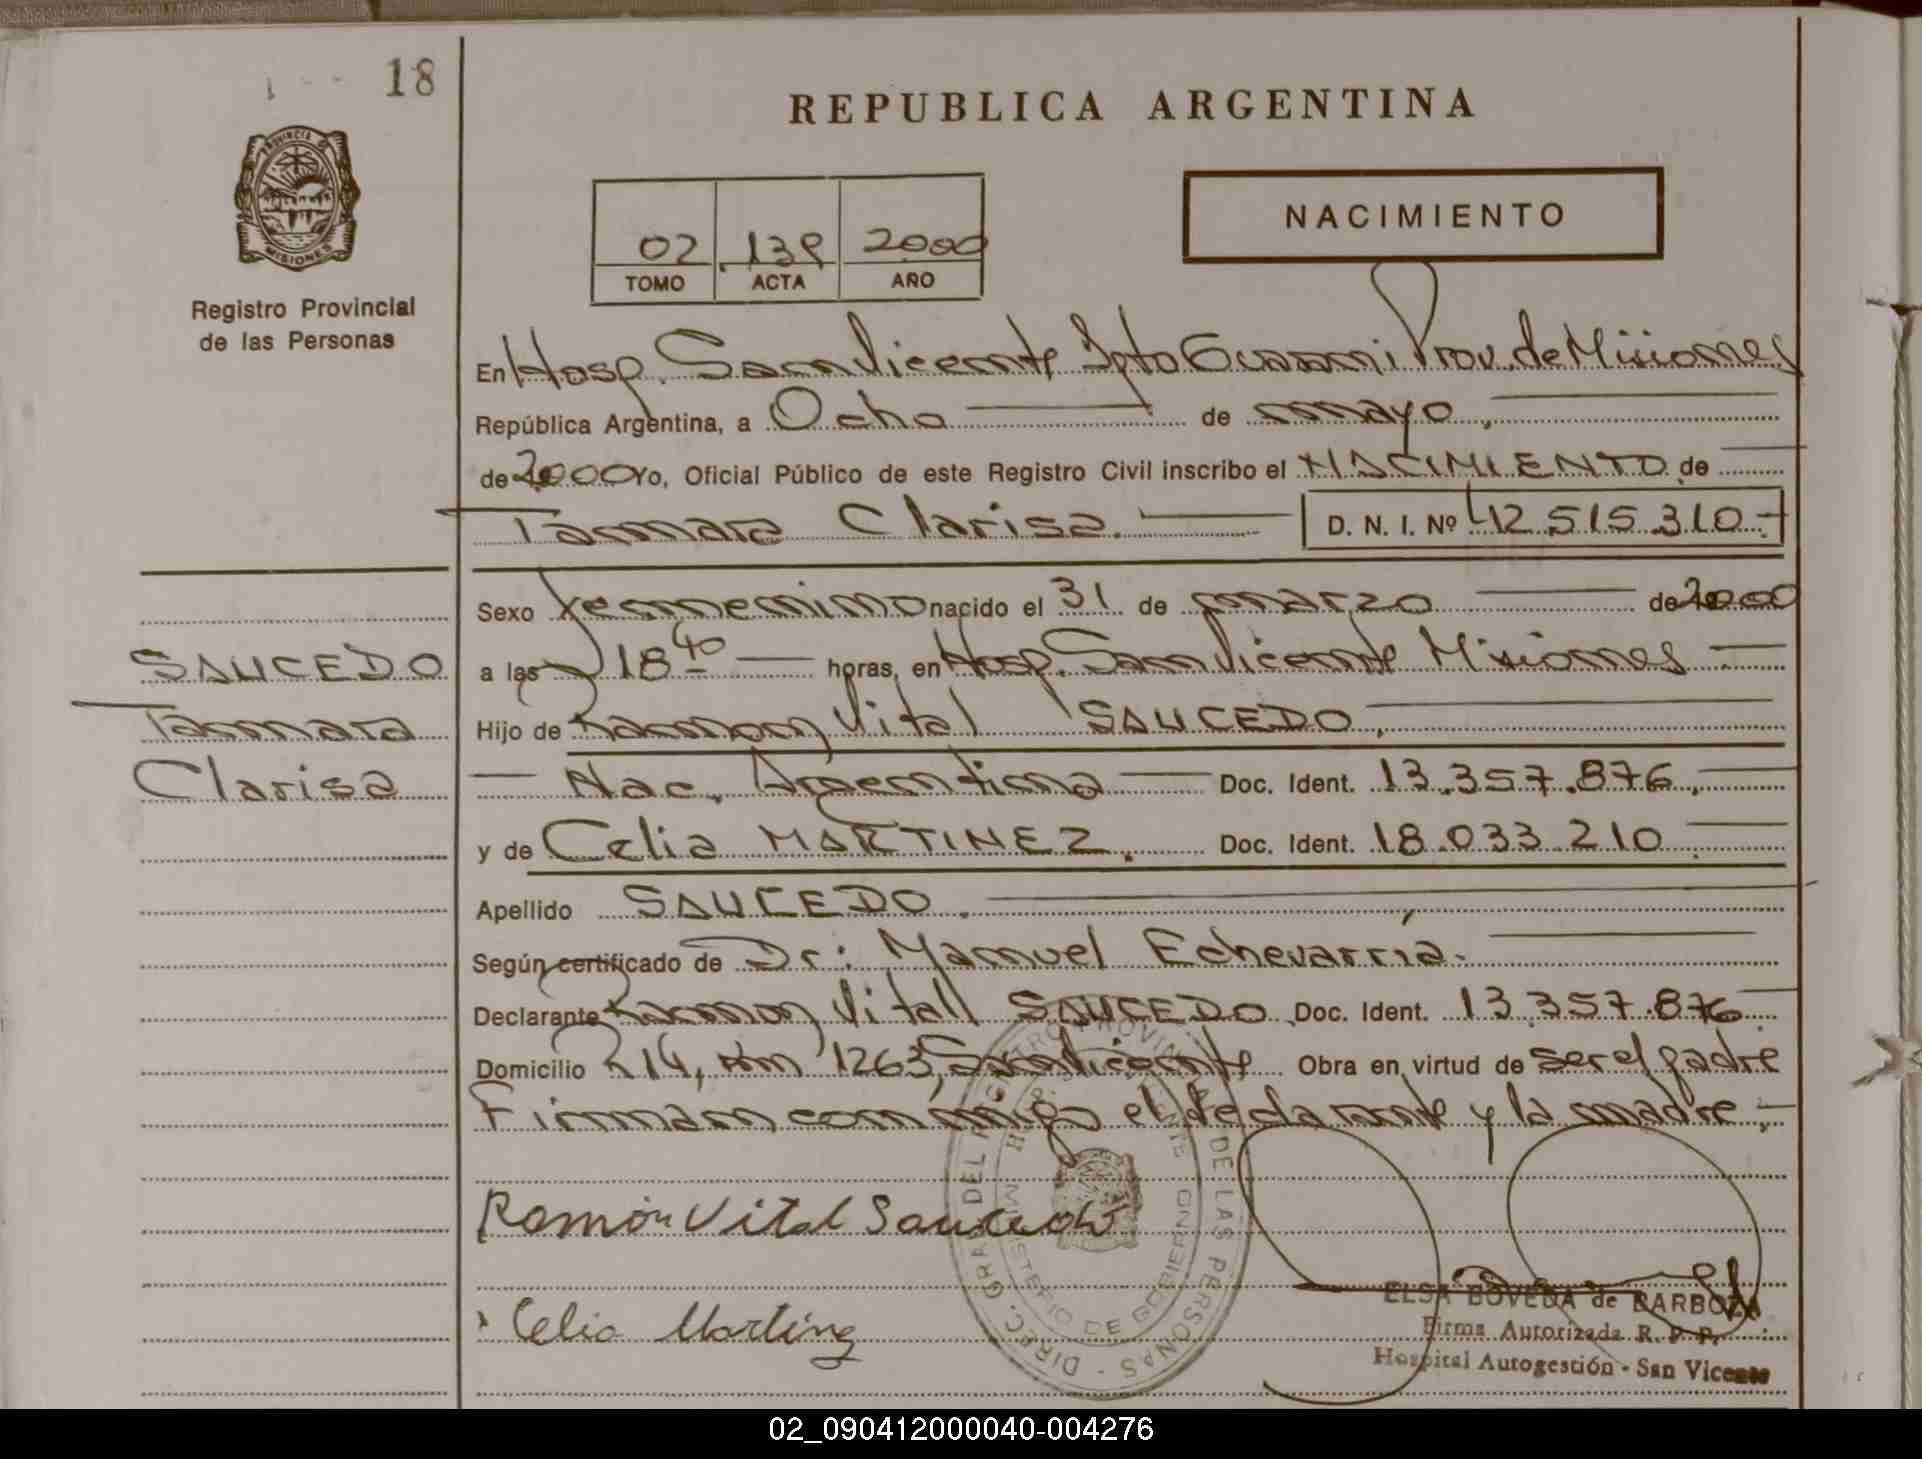 18
REPUBLICA ARGENTINA
PROVINCIA DE
MISIONES
Registro Provincial
de las Personas
02 139 2000
TOMO ACTA AÑO
NACIMIENTO
En Hosp. San Vicente Dpto Guarani Prov. de Misiones
República Argentina, a Ocho de mayo,
de 2000 Yo, Oficial Público de este Registro Civil inscribo el NACIMIENTO de
Tamara Clarisa. D. N. I. Nº 42.515.310
Sexo femenino nacido el 31 de marzo de 2000
a las 18 40 horas, en Hosp. San Vicente Misiones
SAUCEDO
Tamara
Clarisa
Hijo de Ramon Vital SAUCEDO,
Nac. Argentina Doc. Ident. 13.357.876,
y de Celia MARTINEZ. Doc. Ident. 18.033.210
Apellido SAUCEDO.
Según certificado de Dr: Manuel Echevarría.
Declarante Ramon Vitall SAUCEDO Doc. Ident. 13.357.876
Domicilio R 14, Km 1263, San Vicente Obra en virtud de ser el padre
Firman conmigo el declarante y la madre,
Ramón Vital Saucedo
Celia Martinez
DIREC. GRAL. DEL REGISTRO PROVINCIAL DE LAS PERSONAS
MINISTERIO DE GOBIERNO
ELSA BOVEDA de BARBOZA
Firma Autorizada R. P. P.
Hospital Autogestión - San Vicente
02_090412000040-004276